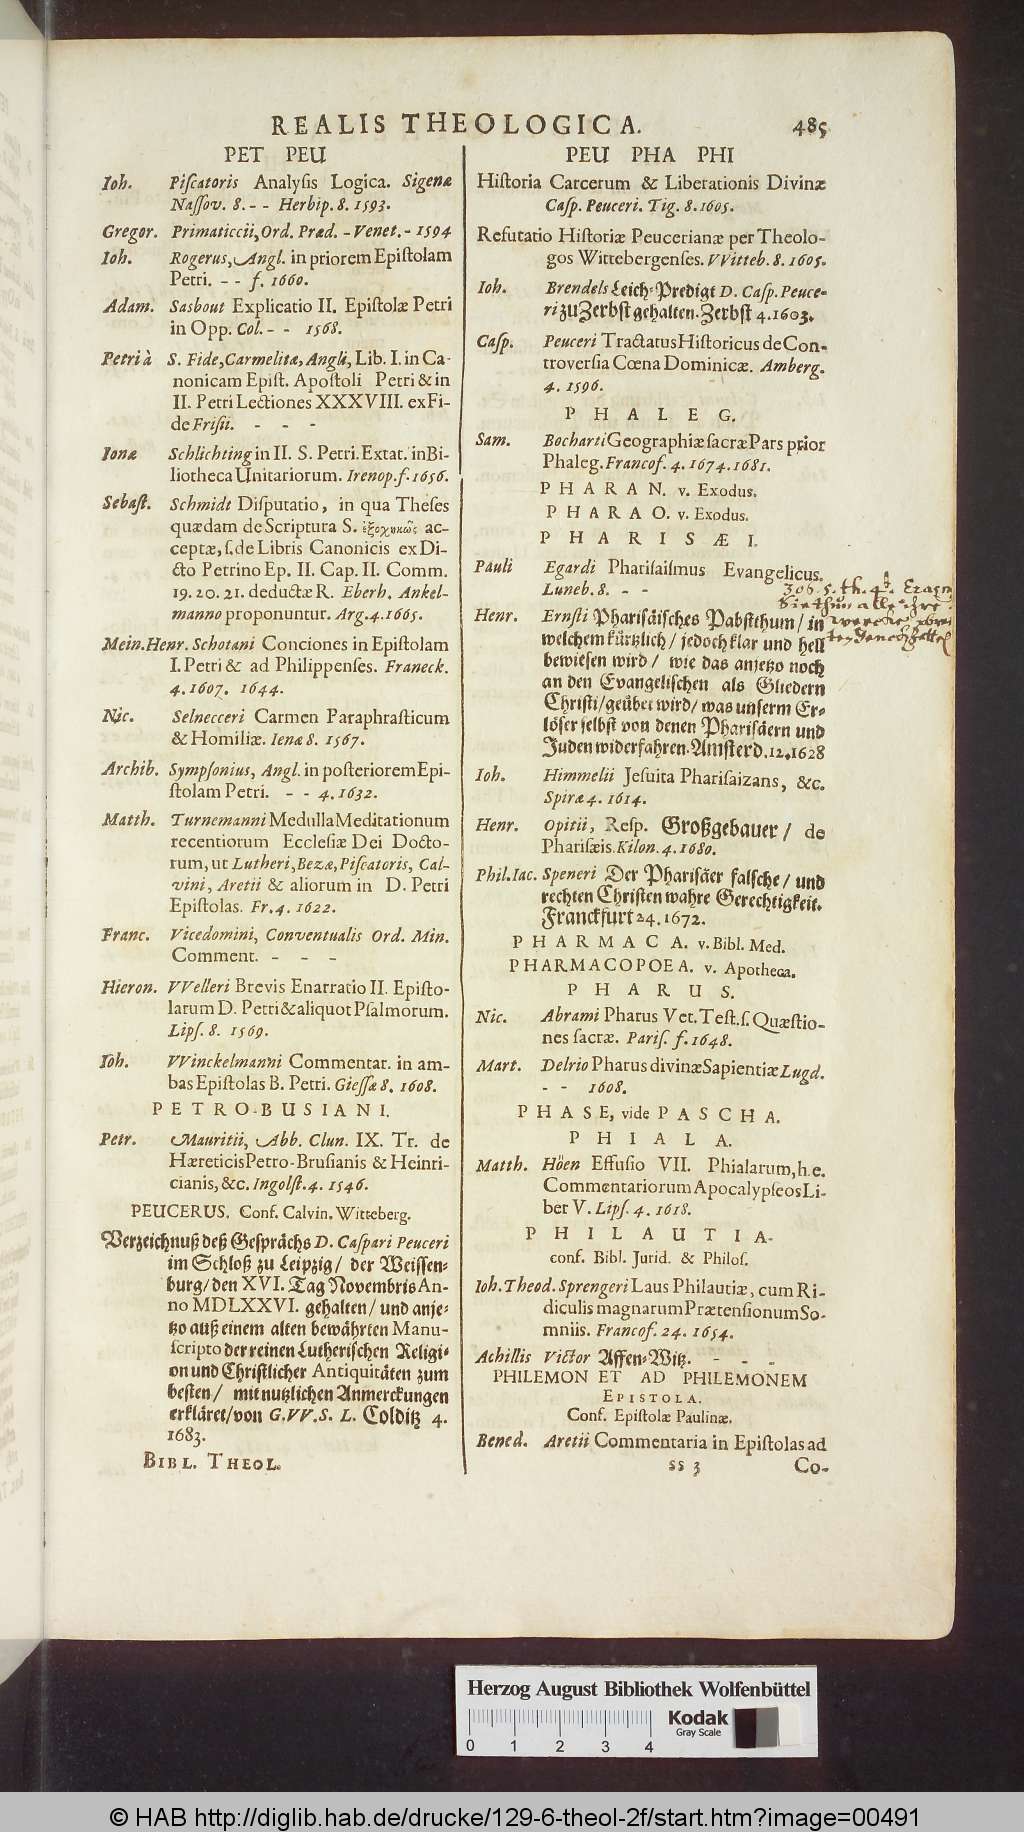 REALIS THEOLOGICA. 485
PET PEU
Ioh. Piſcatoris Analyſis Logica. Sigenæ
Naſſov. 8. - - Herbip. 8. 1593.
Gregor. Primaticcii, Ord. Præd. - Venet. - 1594
Ioh. Rogerus, Angl. in priorem Epiſtolam
Petri. - - f. 1660.
Adam. Sasbout Explicatio II. Epiſtolæ Petri
in Opp. Col. - - 1568.
Petri à S. Fide, Carmelitæ, Angli, Lib. I. in Ca-
nonicam Epiſt. Apoſtoli Petri & in
II. Petri Lectiones XXXVIII. ex Fi-
de Friſii. - - -
Ionæ Schlichting in II. S. Petri. Extat. in Bi-
liotheca Unitariorum. Irenop. f. 1656.
Sebaſt. Schmidt Diſputatio, in qua Theſes
quædam de Scriptura S. ἐξοχικῶς ac-
ceptæ, ſ. de Libris Canonicis ex Di-
cto Petrino Ep. II. Cap. II. Comm.
19. 20. 21. deductæ R. Eberh. Ankel-
manno proponuntur. Arg. 4. 1665.
Mein. Henr. Schotani Conciones in Epiſtolam
I. Petri & ad Philippenſes. Franeck.
4. 1607. 1644.
Nic. Selnecceri Carmen Paraphraſticum
& Homiliæ. Ienæ 8. 1567.
Archib. Sympſonius, Angl. in poſteriorem Epi-
ſtolam Petri. - - 4. 1632.
Matth. Turnemanni Medulla Meditationum
recentiorum Eccleſiæ Dei Docto-
rum, ut Lutheri, Bezæ, Piſcatoris, Cal-
vini, Aretii & aliorum in D. Petri
Epiſtolas. Fr. 4. 1622.
Franc. Vicedomini, Conventualis Ord. Min.
Comment. - - -
Hieron. VVelleri Brevis Enarratio II. Epiſto-
larum D. Petri & aliquot Pſalmorum.
Lipſ. 8. 1569.
Ioh. VVinckelmanni Commentar. in am-
bas Epiſtolas B. Petri. Gieſſæ 8. 1608.
PETRO-BUSIANI.
Petr. Mauritii, Abb. Clun. IX. Tr. de
Hæreticis Petro-Bruſianis & Heinri-
cianis, &c. Ingolſt. 4. 1546.
PEUCERUS. Conf. Calvin. Witteberg.
Verzeichnuß deß Geſprächs D. Caſpari Peuceri
im Schloß zu Leipzig / der Weiſſen-
burg / den XVI. Tag Novembris An-
no MDLXXVI. gehalten / und anje-
tzo auß einem alten bewährten Manu-
ſcripto der reinen Lutheriſchen Religi-
on und Chriſtlicher Antiquitäten zum
beſten / mit nutzlichen Anmerckungen
erkläret / von G. VV. S. L. Colditz 4.
1683.
BIBL. THEOL.
PEU PHA PHI
Hiſtoria Carcerum & Liberationis Divinæ
Caſp. Peuceri. Tig. 8. 1605.
Refutatio Hiſtoriæ Peucerianæ per Theolo-
gos Wittebergenſes. VVitteb. 8. 1605.
Ioh. Brendels Leich-Predigt D. Caſp. Peuce-
ri zu Zerbſt gehalten. Zerbſt 4. 1603.
Caſp. Peuceri Tractatus Hiſtoricus de Con-
troverſia Cœna Dominicæ. Amberg.
4. 1596.
PHALEG.
Sam. Bocharti Geographiæ ſacræ Pars prior
Phaleg. Francof. 4. 1674. 1681.
PHARAN. v. Exodus.
PHARAO. v. Exodus.
PHARISÆI.
Pauli Egardi Phariſaiſmus Evangelicus.
Luneb. 8. - -
Henr. Ernſti Phariſäiſches Pabſtthum / in
welchem kürtzlich / jedoch klar und hell
bewieſen wird / wie das anjetzo noch
an den Evangeliſchen als Gliedern
Chriſti / geübet wird / was unſerm Er-
löſer ſelbſt von denen Phariſäern und
Juden widerfahren. Amſterd. 12. 1628
Ioh. Himmelii Jeſuita Phariſaizans, &c.
Spiræ 4. 1614.
Henr. Opitii, Reſp. Großgebauer / de
Phariſæis. Kilon. 4. 1680.
Phil. Iac. Speneri Der Phariſäer falſche / und
rechten Chriſten wahre Gerechtigkeit.
Franckfurt 24. 1672.
PHARMACA. v. Bibl. Med.
PHARMACOPOEA. v. Apotheca.
PHARUS.
Nic. Abrami Pharus Vet. Teſt. ſ. Quæſtio-
nes ſacræ. Pariſ. f. 1648.
Mart. Delrio Pharus divinæ Sapientiæ Lugd.
- - 1608.
PHASE, vide PASCHA.
PHIALA.
Matth. Höen Effuſio VII. Phialarum, h. e.
Commentariorum Apocalypſeos Li-
ber V. Lipſ. 4. 1618.
PHILAUTIA.
conf. Bibl. Jurid. & Philoſ.
Ioh. Theod. Sprengeri Laus Philautiæ, cum Ri-
diculis magnarum Prætenſionum So-
mniis. Francof. 24. 1654.
Achillis Victor Affen-Witz. - - -
PHILEMON ET AD PHILEMONEM
EPISTOLA.
Conf. Epiſtolæ Paulinæ.
Bened. Aretii Commentaria in Epiſtolas ad
ss 3 Co-
Herzog August Bibliothek Wolfenbüttel
Kodak
Gray Scale
0 1 2 3 4
© HAB http://diglib.hab.de/drucke/129-6-theol-2f/start.htm?image=00491